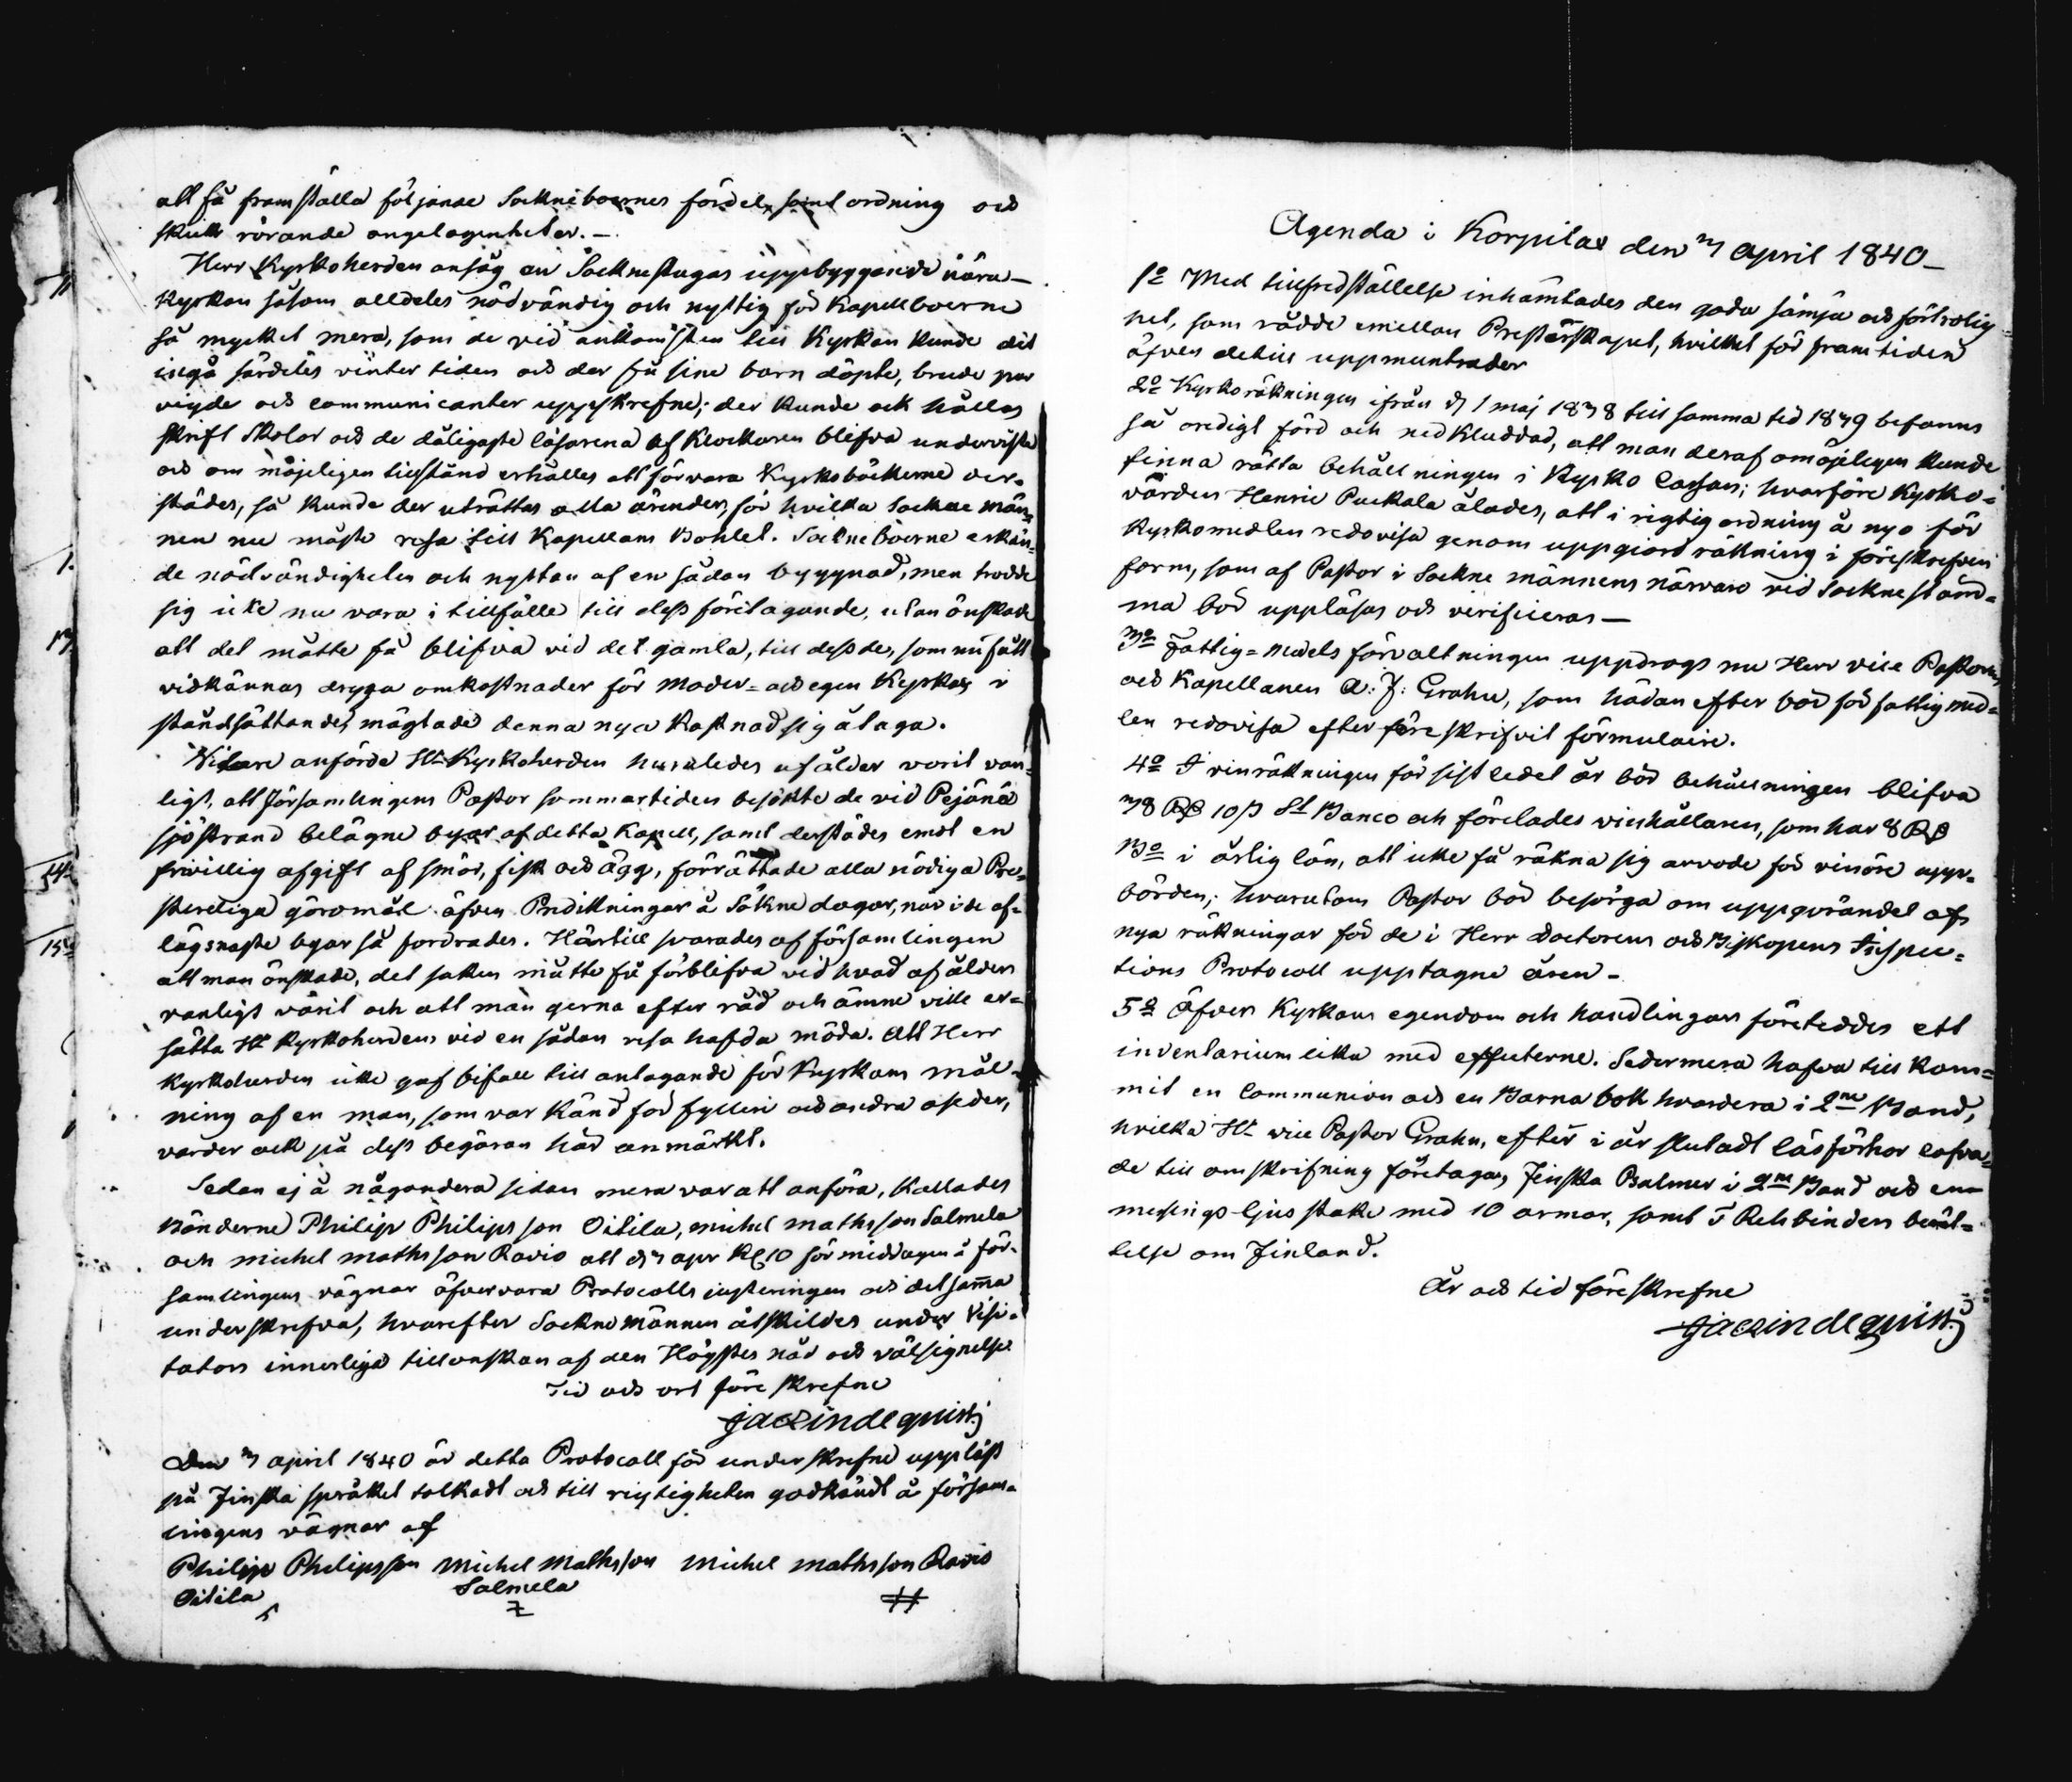 att få framställa följande Sockneboernes fördel, samt ordning och
skick rörande angelägenheter. —
Herr Kyrkoherden ansåg en Socknestugas uppbyggande nära
Kyrkan såsom alldeles nödvändig och nyttig för Kapellboerne
så mycket mera, som de vid ankomsten till Kyrkan kunde dit
ingå särdeles vinter tiden och der få sine barn döpte, brude par
vigde och communicanter uppskrefne; der kunde ock hållas
skrift skolor och de dåligaste läsarena af Klockaren blifva underviste
och om möjeligen tillstånd erhålles att förvara Kyrkoböckerne der-
städes, så kunde der uträttas alla ärender, för hvilka Sockne män-
nen nu måste resa till Kapellans Bohlet. Sockneboerne erkän-
de nödvändigheten och nyttan af en sådan byggnad, men trodde
sig icke nu vara i tillfälle till dess företagande, utan önskade
att det måtte få blifva vid det gamla, till dess de, som nu fått
vidkännas dryga omkostnader för Moder= och egen Kyrkas i
ståndsättande, mägtade denna nya kostnad sig ålaga.
Vidare anförde Hr Kyrkoherden huruledes af ålder varit van-
ligt, att församlingens Pastor sommartiden besökte de vid Pejäne
sjöstrand belägne byar af detta Kapell, samt derstädes emot en
frivillig afgift af smör, fisk och ägg, förrättade alla nödiga Pre-
sterliga göromål äfven Predikningar å Sökne dagar, når i de af-
lägsnaste byar så fordrades. Härtill svarades af församlingen
att man önskade, det saken måtte få förblifva vid hvad af ålder
vanligt varit och att man gerna efter råd och ämne ville er-
sätta Hr Kyrkoherdens vid en sådan resa hafda möda. Att Herr
Kyrkoherden icke gaf bifall till antagande för Kyrkans mål-
ning af en man, som var känd för fylleri och andra oseder,
varder ock på dess begäran här anmärkt.
Sedan ej å någondera sidan mera var att anföra, kallades
Bönderne Philip Philipsson Oitila, Michel Mathsson Salmela
och Michel Mathsson Ravio att d 3 apr Kl 10 för middagen å för-
samlingens vägnar öfvervara Protocolls justeringen och det samma
underskrifva, hvarefter Sockne männen åtskildes under Visi-
tators innerliga tillönskan af den Högstes nåd och välsignelse
Tid och ortföre skrefne
Jac Lindequist
Den 3 april 1840 är detta Protocoll för underskrefne uppläst
på Finska språket tolkadt och till rigtigheten godkändt å försam-
lingens vägnar af
Philip Philipsson Michel Mathsson Michel Mathsson Ravio
Oitila Salmela
Agenda i Korpilax den 3 april 1840 —
1o Med tillfredställelse inhämtades den goda sämja och förtrolig=
het, som rådde emellan Presterskapet, hvilket för framtiden
äfven detill uppmuntrades
2o Kyrkoräkningen ifrån d 1 maj 1838 till samma tid 1839 befanns
så oredigt förd och nedkluddad, att man deraf omöjligen kunde
finna rätta behållningen i Kyrko Cassan; hvarföre Kyrko=
värden Henric Puckala ålades, att i rigtig ordning å nyo för
Kyrkomedlen redovisa genom uppgiord räkning i föreskrefven
form, som af Pastor i Sockne männens närvaro vid Socknestäm=
ma bör uppläsas och verificeras —
3o Fattig=medels förvaltningen uppdrogs nu Herr vice Pastorn
och Kapellanen A: J: Grahn, som hädan efter bör för fattigmed=
len redovisa efter föreskrifvit formulaire.
4o I vinräkningen för sist ledet år bör behållningen blifva
38 Rß 10ß St Banco och förelades vinhållaren, som har 8 Rß
Bo i årlig lön, att icke få räkna sig arvode för vinöre upp=
börden; hvarutom Pastor bör besörga om uppgörandet af
nya räkningar för de i Herr Doctorens och Biskopens Inspec=
tions Protocoll upptagne åren —
5o Öfver Kyrkans egendom och handlingar företeddes ett
inventarium lika med effecterne. Sedermera hafva till kom=
mit en Communion och en Barna bok hvardera i 2ne Band,
hvilka Hr vice Pastor Grahn, efter i år slutadt läsförhör lofva=
de till omskrifning företaga, Finska Psalmer i 2ne Band och en
messings ljusstake med 10 armar, samt v Rehbinders berät=
telse om Finland.
År och tid föreskrefne
Jac Lindequist